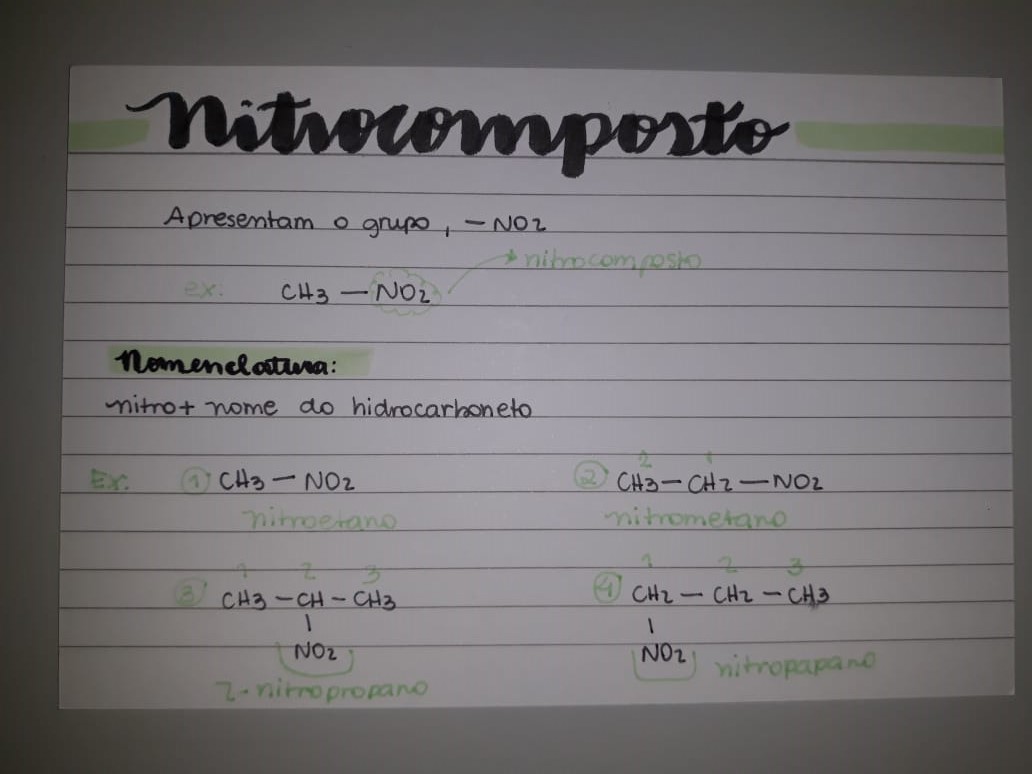 Nitrocomposto
Apresentam o grupo, - NO2
nitrocomposto
ex: CH3 — NO2
Nomenclatura:
nitro + nome do hidrocarboneto
Ex: 1 CH3 — NO2
nitroetano
2 1
2 CH3 — CH2 — NO2
nitrometano
1 2 3
3 CH3 — CH — CH3
|
NO2
2-nitropropano
1 2 3
4 CH2 — CH2 — CH3
|
NO2
nitropapano